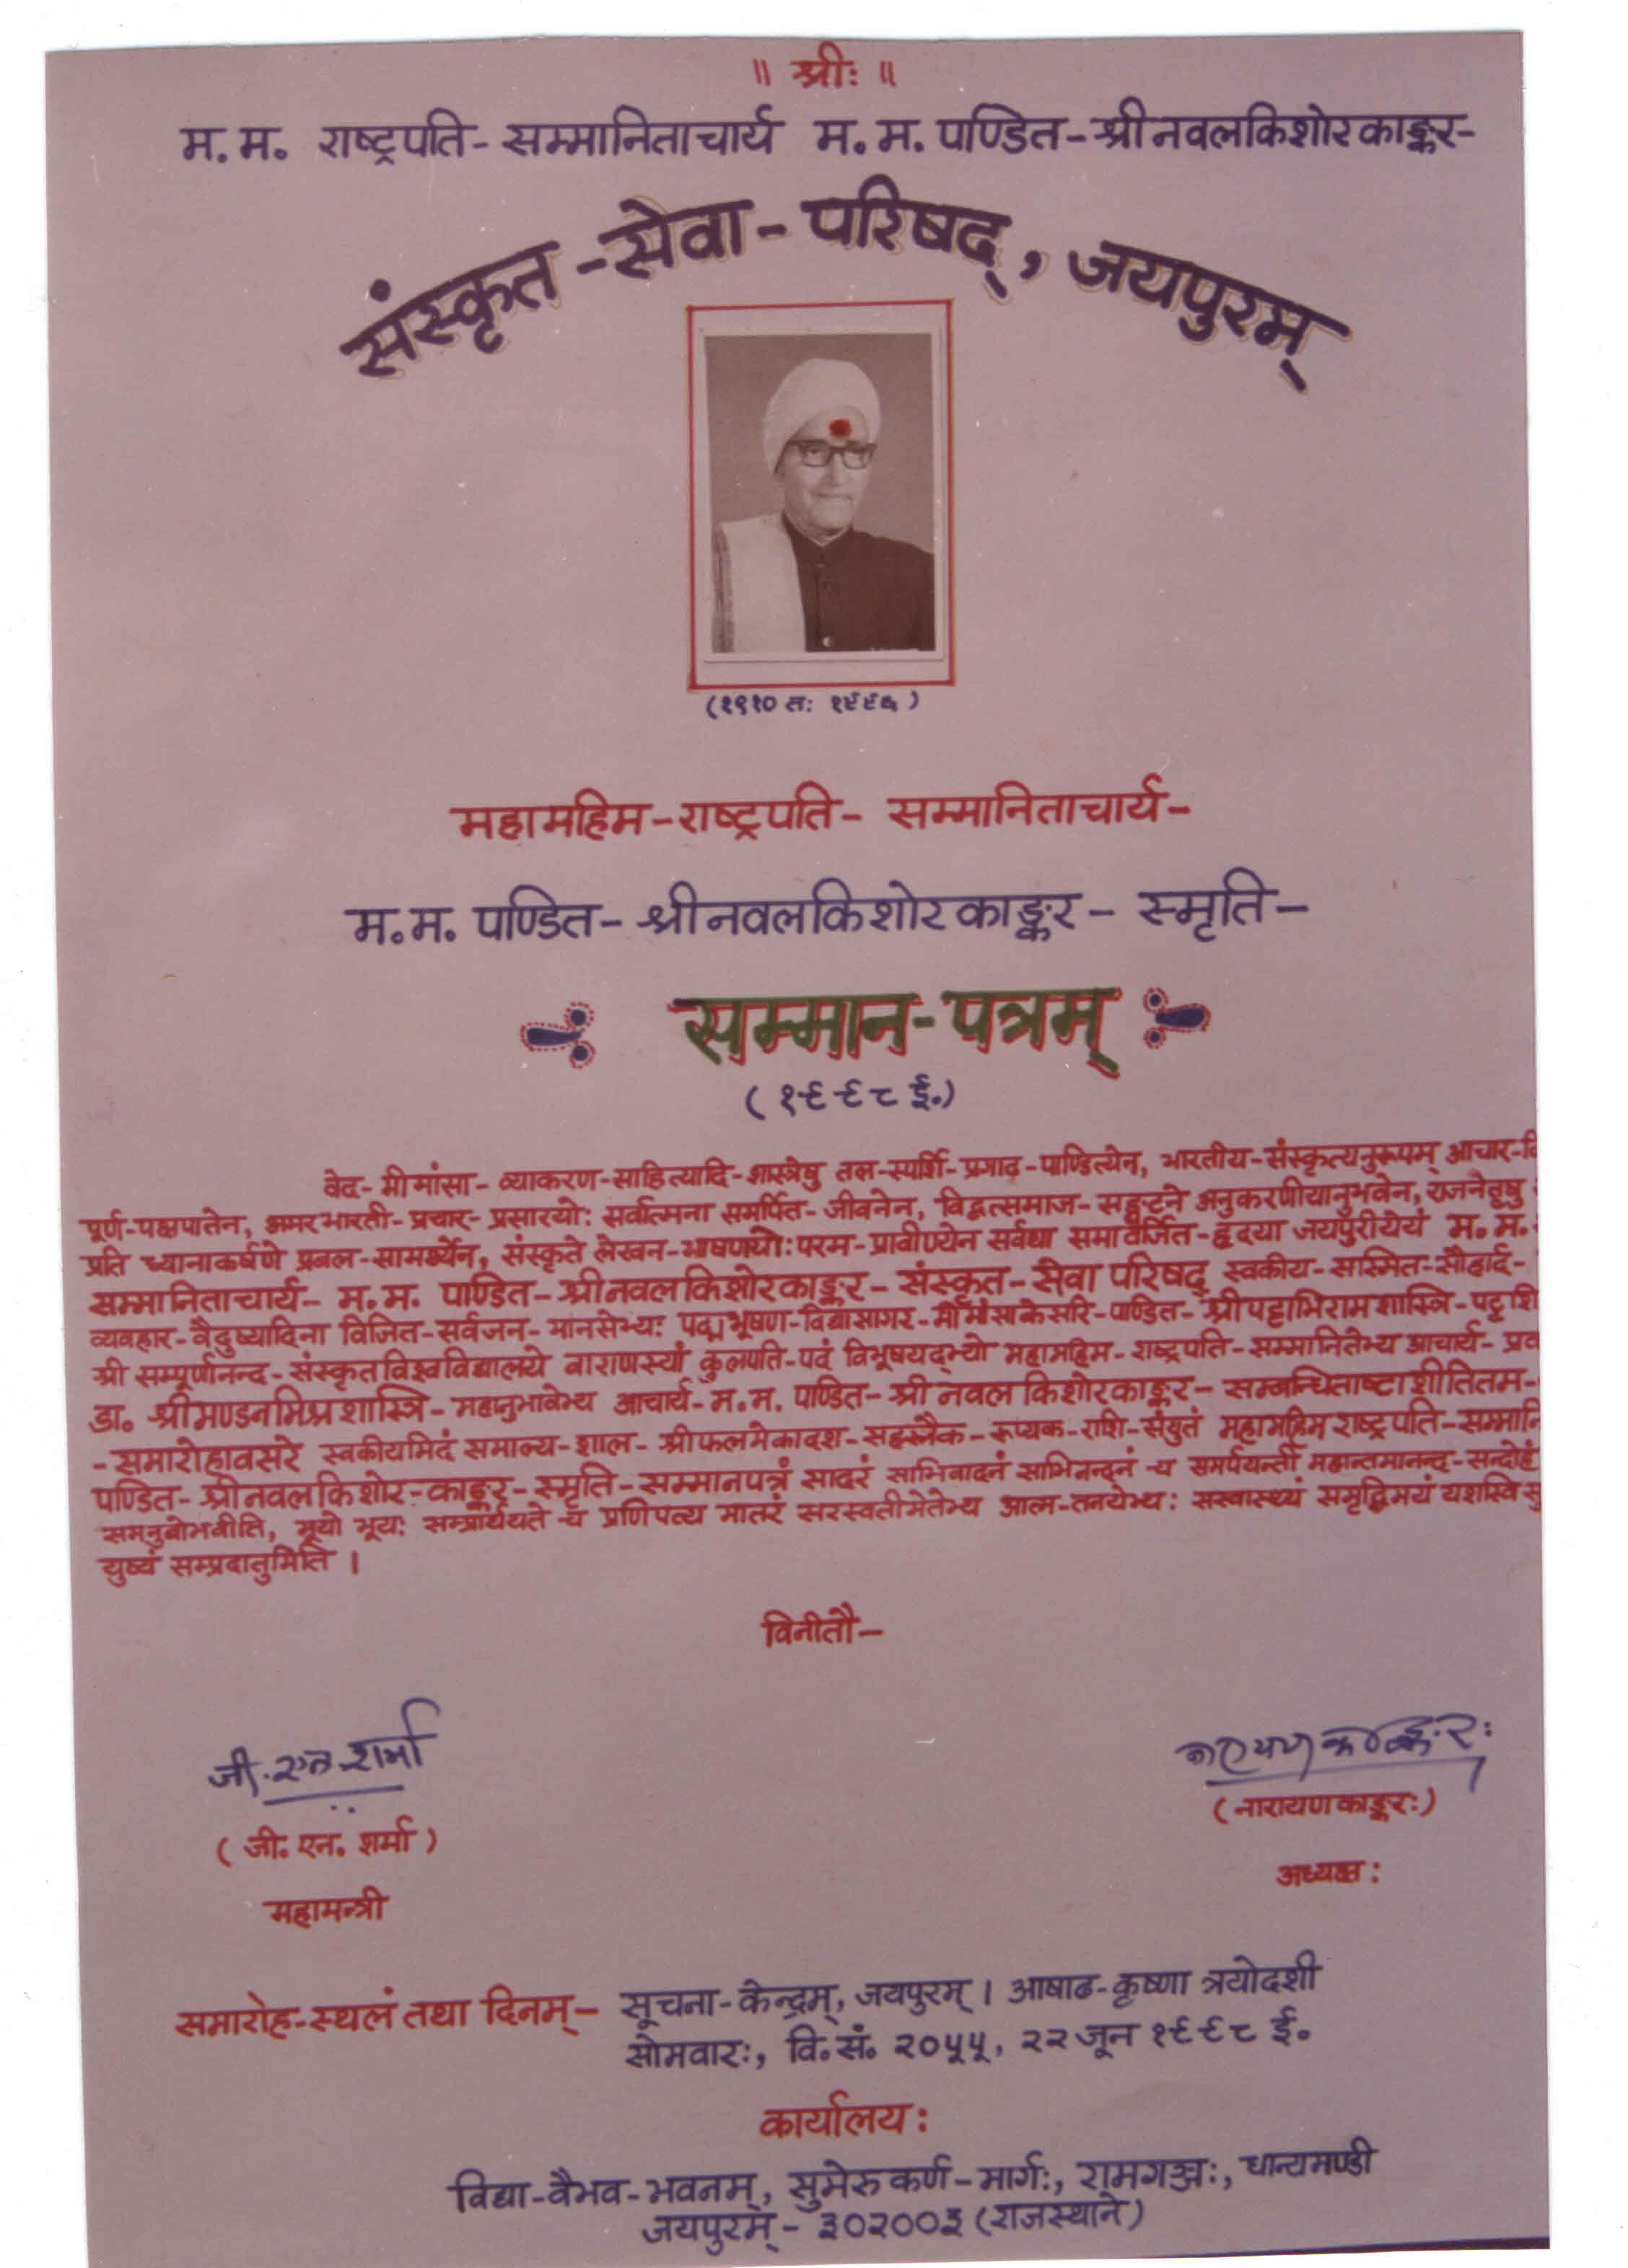 ॥ श्रीः ॥
म.म. राष्ट्रपति-सम्मानिताचार्य म.म. पण्डित-श्रीनवलकिशोरकाङ्कर-
संस्कृत-सेवा-परिषद्, जयपुरम्
(१९१० तः १९९६)
महामहिम-राष्ट्रपति- सम्मानिताचार्य-
म.म. पण्डित- श्रीनवलकिशोरकाङ्कर- स्मृति-
सम्मान-पत्रम्
(१९९८ ई.)
वेद-मीमांसा-व्याकरण-साहित्यादि-शास्त्रेषु तल-स्पर्शि-प्रगाढ-पाण्डित्येन, भारतीय-संस्कृत्यनुरूपम् आचार-
पूर्ण-पक्षपातेन, अमरभारती-प्रचार-प्रसारयोः सर्वात्मना समर्पित-जीवनेन, विद्वत्समाज-सङ्घटने अनुकरणीयानुभवेन, राजनेतृषु
प्रति ध्यानाकर्षणे प्रबल-सामर्थ्येन, संस्कृते लेखन-भाषणयोः परम-प्रावीण्येन सर्वथा समावर्जित-हृदया जयपुरीयेयं म.म.
सम्मानिताचार्य- म.म. पण्डित-श्रीनवलकिशोरकाङ्कर-संस्कृत-सेवा परिषद् स्वकीय-सस्मित-सौहार्द-
व्यवहार-वैदुष्यादिना विजित-सर्वजन-मानसेभ्यः पद्मभूषण-विद्यासागर-मीमांसाकेसरि-पण्डित-श्रीपट्टाभिरामशास्त्रि-पट्टशि
श्री सम्पूर्णानन्द-संस्कृतविश्वविद्यालये वाराणस्यां कुलपति-पदं विभूषयद्भ्यो महामहिम-राष्ट्रपति-सम्मानितेभ्य आचार्य-प्रव
डा. श्रीमण्डनमिश्रशास्त्रि-महानुभावेभ्य आचार्य-म.म. पण्डित-श्रीनवलकिशोरकाङ्कर-सम्बन्धिताष्टाशीतितम-
-समारोहावसरे स्वकीयमिदं समाल्य-शाल-श्रीफलमेकादश-सहस्रैक-रूप्यक-राशि-संयुतं महामहिम राष्ट्रपति-सम्मानि
पण्डित-श्रीनवलकिशोर-काङ्कर-स्मृति-सम्मानपत्रं सादरं साभिवादनं साभिनन्दनं च समर्पयन्ती महान्तमानन्द-सन्दोहं
समनुबोभवीति, भूयो भूयः सम्प्रार्थयते च प्रणिपत्य मातरं सरस्वतीमेतेभ्य आत्म-तनयेभ्यः सस्वास्थ्यं समृद्धिमयं यशस्वि सु
युष्यं सम्प्रदातुमिति ।
विनीतौ-
जी.एन.शर्मा
नारायणकाङ्करः
(जी. एन. शर्मा)
(नारायणकाङ्करः)
महामन्त्री
अध्यक्षः
समारोह-स्थलं तथा दिनम्- सूचना-केन्द्रम्, जयपुरम् । आषाढ-कृष्णा त्रयोदशी
सोमवारः, वि.सं. २०५५, २२ जून १९९८ ई.
कार्यालयः
विद्या-वैभव-भवनम्, सुमेरुकर्ण-मार्गः, रामगञ्जः, धान्यमण्डी
जयपुरम्- ३०२००३ (राजस्थाने)